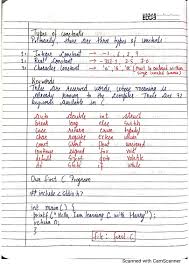 Types of constants
Primarily, there are three types of constants
1. Integer Constant → -1, 6, 7, 9
2. Real Constant → 2.5
3. Character Constant → 'a'
Keywords
These are reserved words, whose meaning is
already known to the compiler. There are 32
keywords available in C
auto double int struct
break long else switch
case return enum typedef
char register extern union
const short float unsigned
continue signed for void
default sizeof goto volatile
do static if while
Our first C Program
#include <stdio.h>
int main() {
printf("Hello, I am learning C with Harry");
return 0;
}
File: first.c
Scanned with CamScanner